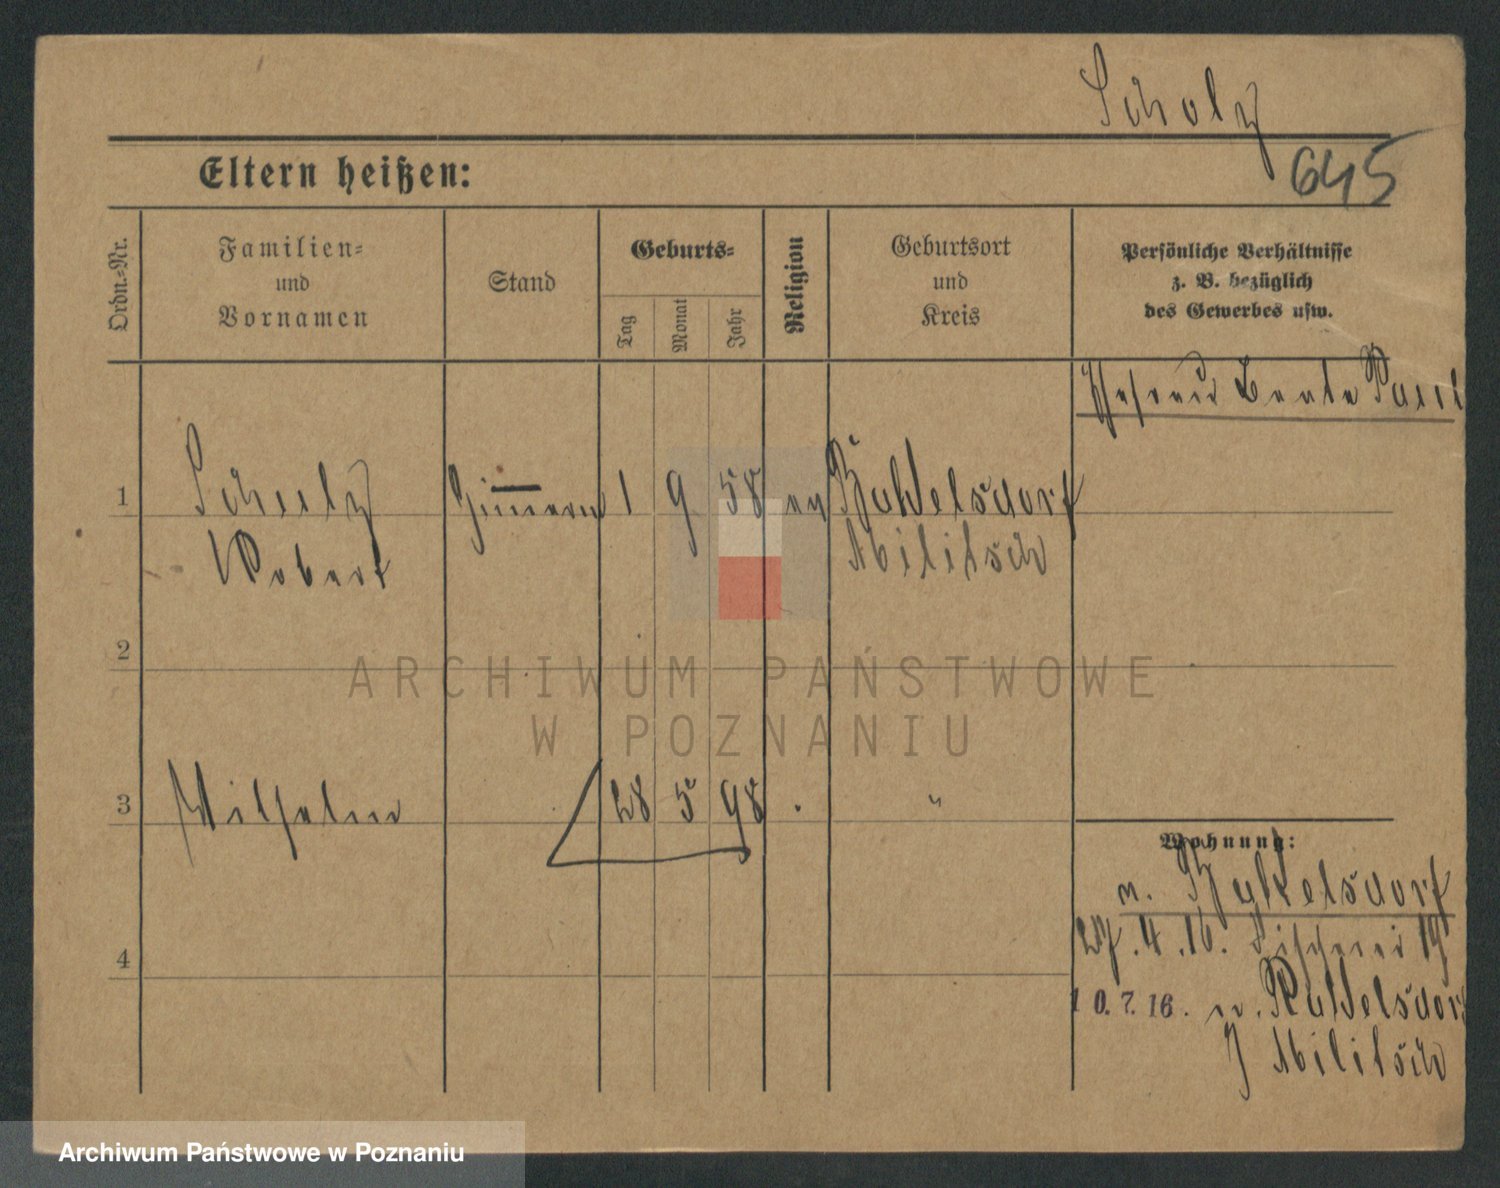 Scholz
Eltern heißen:
645
Ordn.-Nr.
Familien-
und
Vornamen
Stand
Geburts-
Tag
Monat
Jahr
Religion
Geburtsort
und
Kreis
Persönliche Verhältnisse
z. B. bezüglich
des Gewerbes usw.
Paul
1
Scholz
1 9 58
ev
Robert
Militsch
2
ARCHIWUM PAŃSTWOWE
W POZNANIU
3
Wilhelm
28 5 98
"
Wohnung:
n.
27.4.16. 19
4
10.7.16. n.
Militsch
Archiwum Państwowe w Poznaniu